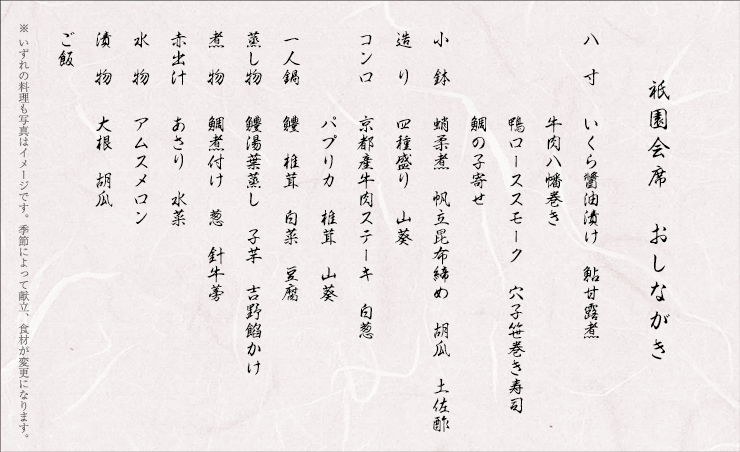 祇園会席　おしながき
八　寸　いくら醤油漬け　鮎甘露煮
牛肉八幡巻き
鴨ローススモーク　穴子笹巻き寿司
鯛の子寄せ
小　鉢　蛸柔煮　帆立昆布締め　胡瓜　土佐酢
造　り　四種盛り　山葵
コンロ　京都産牛肉ステーキ　白葱
パプリカ　椎茸　山葵
一人鍋　鱧　椎茸　白菜　豆腐
蒸し物　鱧湯葉蒸し　子芋　吉野餡かけ
煮　物　鯛煮付け　葱　針牛蒡
赤出汁　あさり　水菜
水　物　アムスメロン
漬　物　大根　胡瓜
ご飯
※いずれの料理も写真はイメージです。季節によって献立、食材が変更になります。